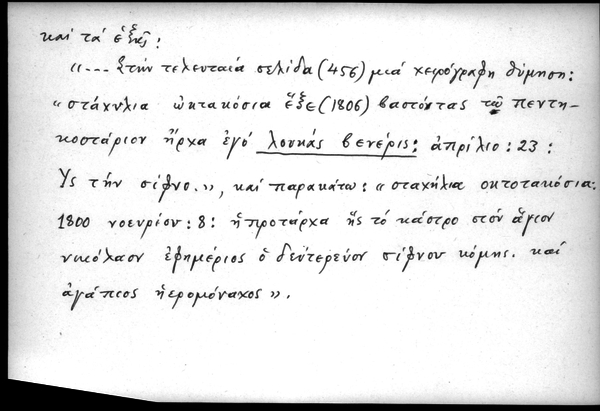 καί τά ἑξῆς:
«--- Στήν τελευταία σελίδα (456) μιά χειρόγραφη θύμηση:
"στάχυλια ὠκτακόσια ἕξε (1806) βαστόντας τῶ πεντη-
κοστάριον ἦρχα ἐγό λουκάς βενέρις: ἀπρίλιο: 23:
Υς τήν σίφνο.», καί παρακάτω: «σταχήλια οκτοτακόσια:
1800 νοενρίου: 8: ἡπροτάρχα ἧς τό κάστρο στόν ἅγιον
νικόλαον ἐφημέριος ὁ δεύτερεύον σίφνου κόμης. καί
ἀγάπεος ἡερομόναχος».